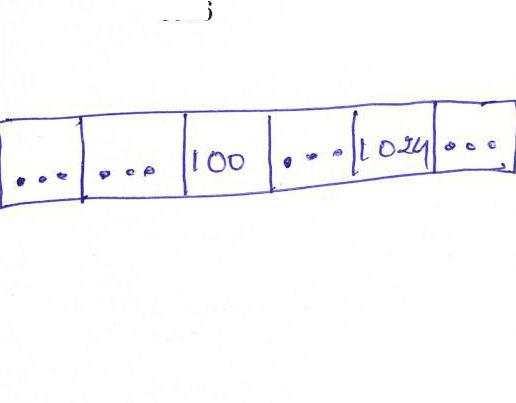 ... ... 100 ... 1024 ...